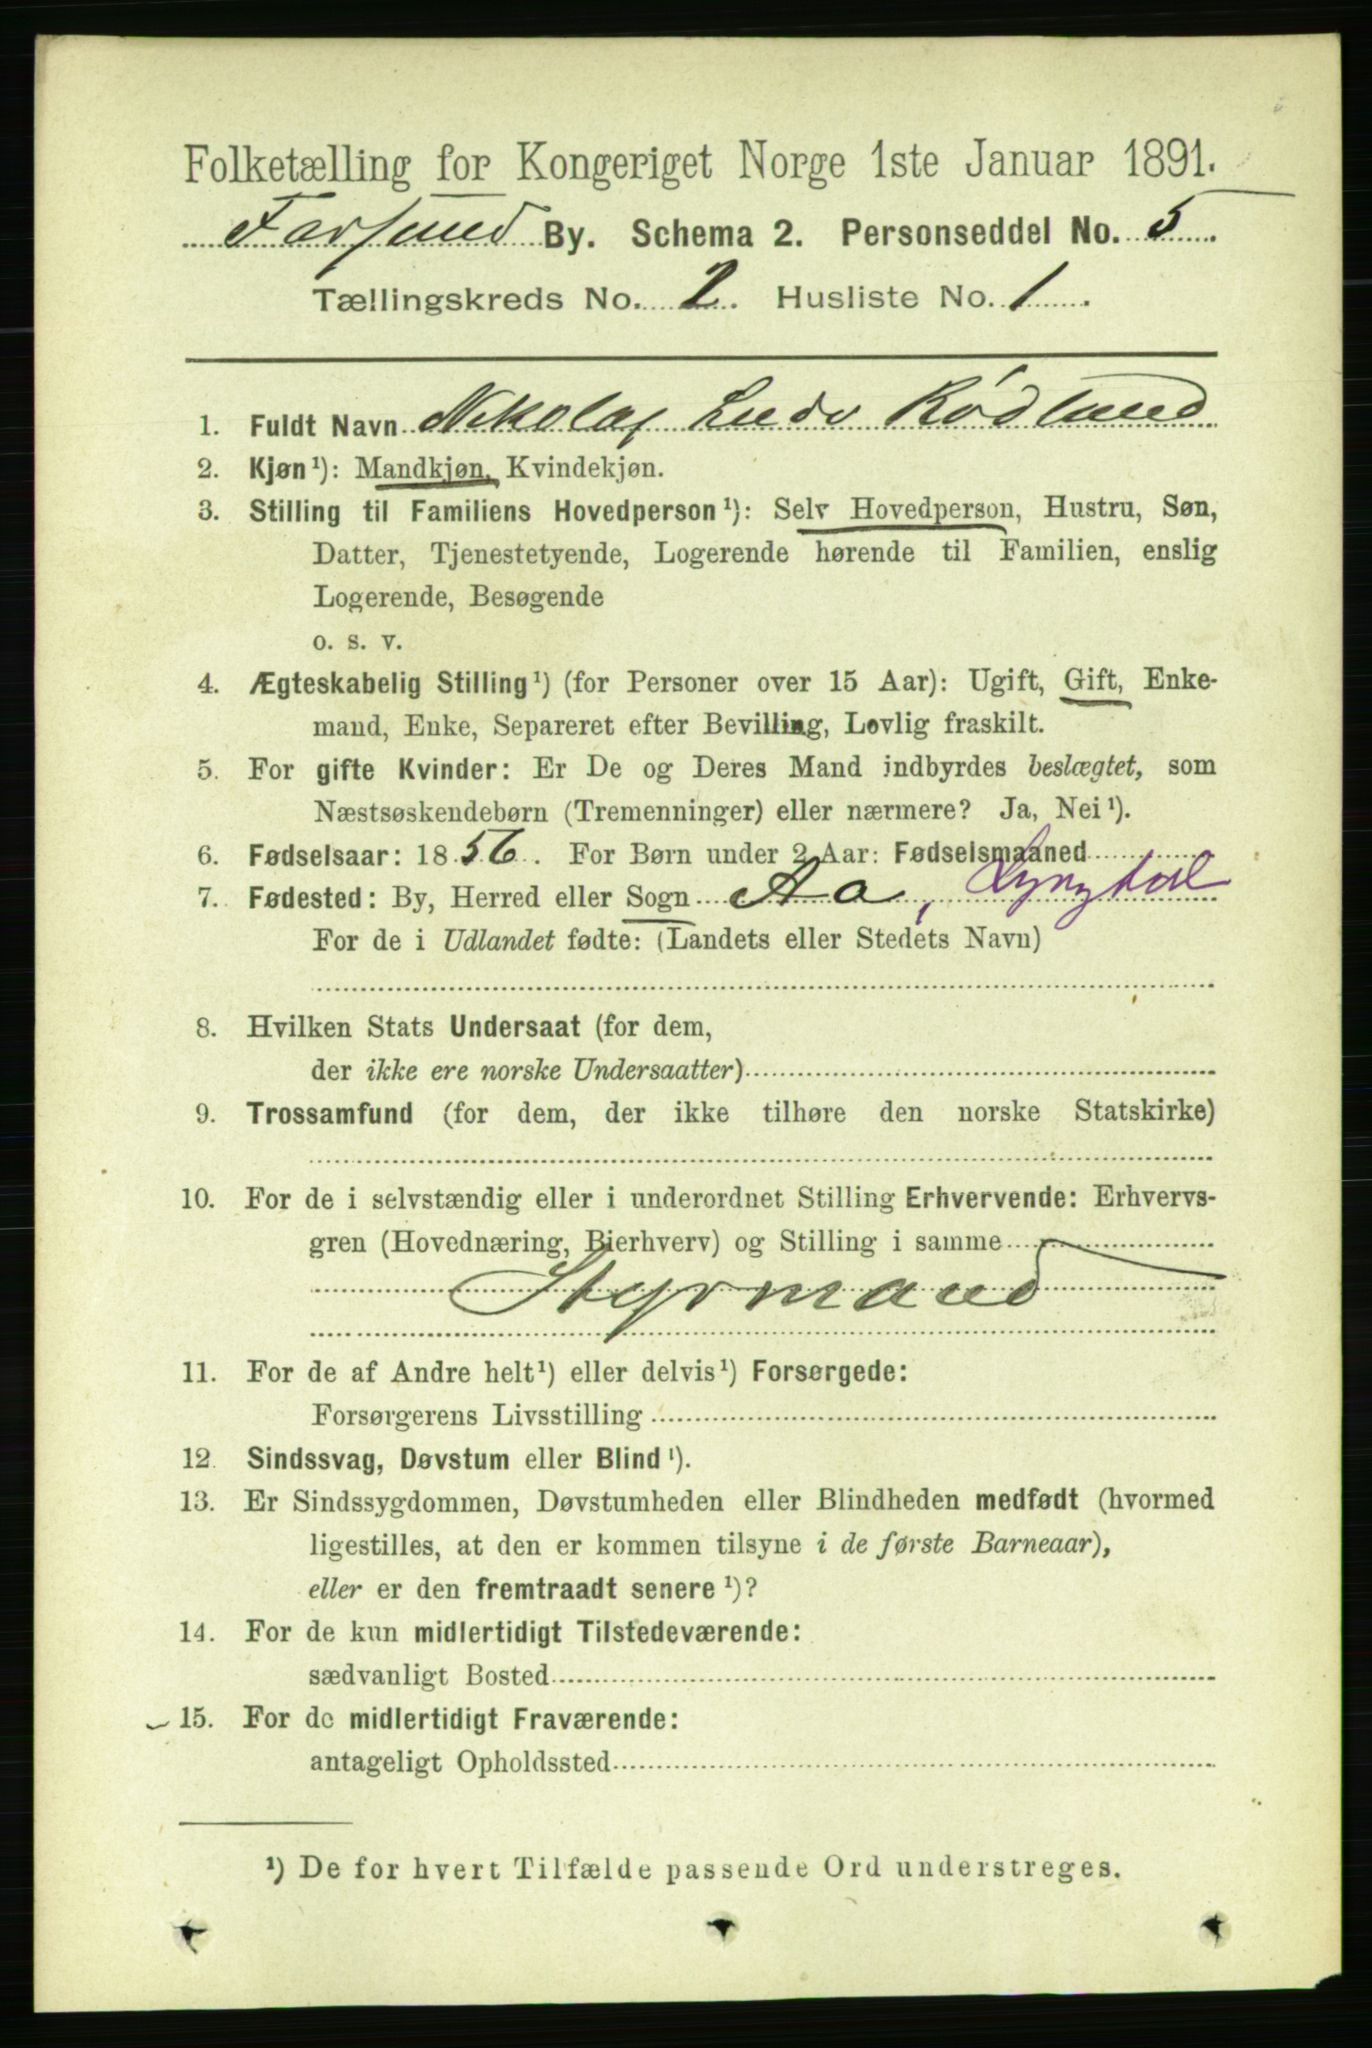 Folketælling for Kongeriget Norge 1ste Januar 1891.
Farsund By. Schema 2. Personseddel No. 5
Tællingskreds No. 2. Husliste No. 1.
1. Fuldt Navn Nikolaj Ludv Rødlund
2. Kjøn ¹): Mandkjøn, Kvindekjøn.
3. Stilling til Familiens Hovedperson ¹): Selv Hovedperson, Hustru, Søn,
Datter, Tjenestetyende, Logerende hørende til Familien, enslig
Logerende, Besøgende
o. s. v.
4. Ægteskabelig Stilling ¹) (for Personer over 15 Aar): Ugift, Gift, Enke-
mand, Enke, Separeret efter Bevilling, Lovlig fraskilt.
5. For gifte Kvinder: Er De og Deres Mand indbyrdes beslægtet, som
Næstsøskendebørn (Tremenninger) eller nærmere? Ja, Nei ¹).
6. Fødselsaar: 1856. For Børn under 2 Aar: Fødselsmaaned
7. Fødested: By, Herred eller Sogn Aa, Lyngdal
For de i Udlandet fødte: (Landets eller Stedets Navn)
8. Hvilken Stats Undersaat (for dem,
der ikke ere norske Undersaatter)
9. Trossamfund (for dem, der ikke tilhøre den norske Statskirke)
10. For de i selvstændig eller i underordnet Stilling Erhvervende: Erhvervs-
gren (Hovednæring, Bierhverv) og Stilling i samme
Styrmand
11. For de af Andre helt ¹) eller delvis ¹) Forsørgede:
Forsørgerens Livsstilling
12. Sindssvag, Døvstum eller Blind ¹).
13. Er Sindssygdommen, Døvstumheden eller Blindheden medfødt (hvormed
ligestilles, at den er kommen tilsyne i de første Barneaar),
eller er den fremtraadt senere ¹)?
14. For de kun midlertidigt Tilstedeværende:
sædvanligt Bosted
15. For de midlertidigt Fraværende:
antageligt Opholdssted
¹) De for hvert Tilfælde passende Ord understreges.